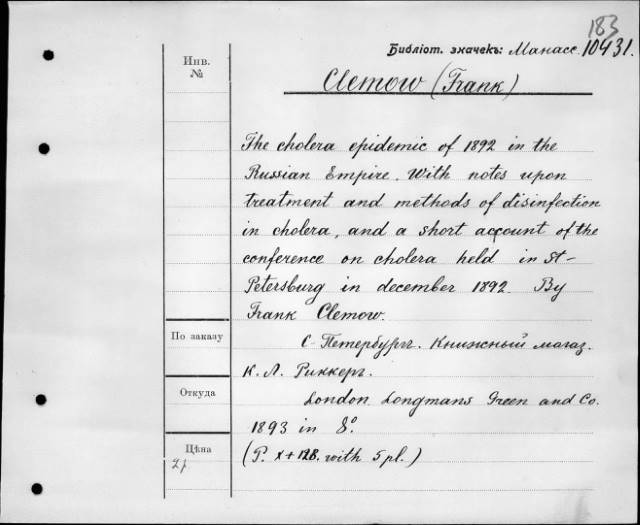 183
Библіот. значекъ: Манасс. 10431.
Инв.
№
Clemow (Frank)
The cholera epidemic of 1892 in the
Russian Empire. With notes upon
treatment and methods of disinfection
in cholera, and a short account of the
conference on cholera held in St-
Petersburg in december 1892. By
Frank Clemow.
По заказу
С-Петербург. Книжный магаз.
К. Л. Риккерг.
Откуда
London Longmans Green and Co.
1893 in 8º
Цѣна
(P. x + 128. with 5 pl.)